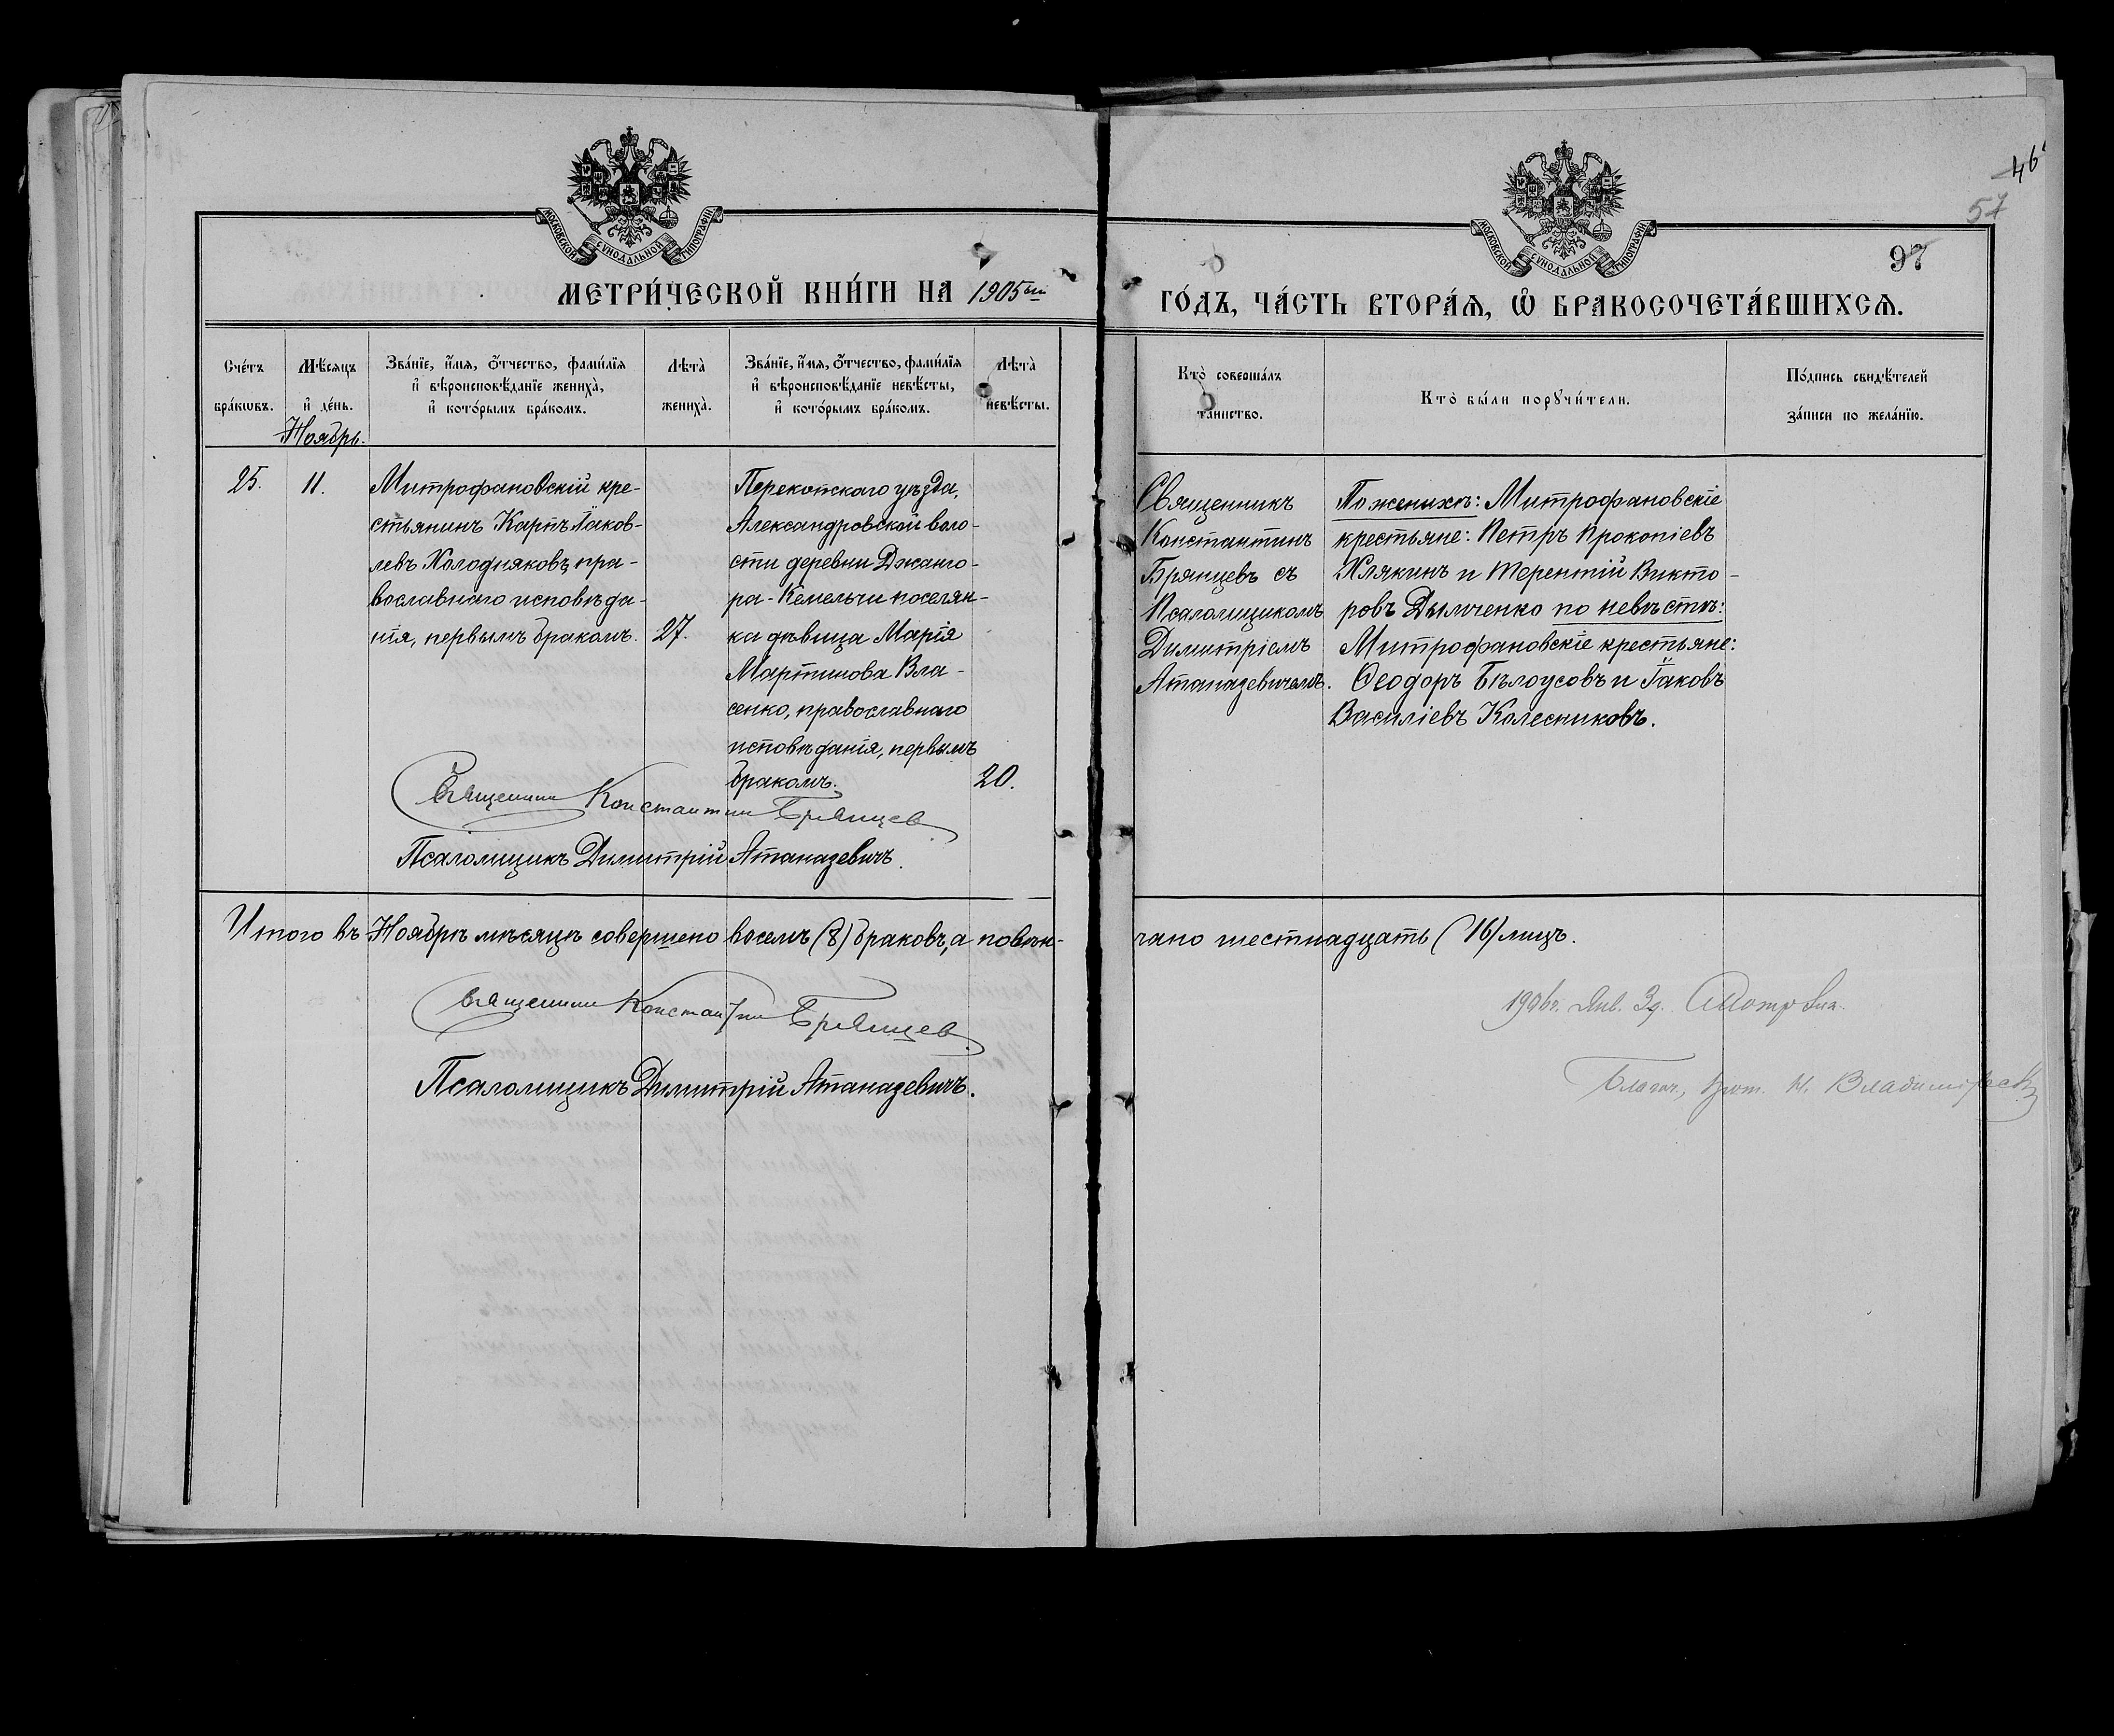 46
57
97
МОСКОВСКОЙ СѴНОДАЛЬНОЙ ТИПОГРАФІИ
МОСКОВСКОЙ СѴНОДАЛЬНОЙ ТИПОГРАФІИ
МЕТРИ́ЧЕСКОЙ КНИ́ГИ НА 1905ый
ГО́ДЪ, ЧА́СТЬ ВТОРА́Ѧ, Ѽ БРАКОСОЧЕТА́ВШИХСѦ.
Сче́тъ бра́кѡвъ.
Мѣ́сяцъ и҆ де́нь.
Ноябрь.
Зва́нїе, и҆́мя, ѻ҆́тчество, фами́лїя
и҆ вѣроисповѣ́данїе жениха̀,
и҆ кото́рымъ бра́комъ.
Лѣта̀ жениха̀.
Зва́нїе, и҆́мя, ѻ҆́тчество, фами́лїя
и҆ вѣроисповѣ́данїе невѣ́сты,
и҆ кото́рымъ бра́комъ.
Лѣта̀ невѣ́сты.
Кто̀ соверша́лъ
та́инство.
Кто̀ бы́ли порꙋчи́тели.
По́дпись свидѣ́телей
за́писи по жела́нїю.
25.
11.
Митрофановскій кре-
стьянинъ Карпъ Іаков-
левъ Холодняковъ, пра-
вославнаго исповѣда-
нія, первымъ бракомъ.
27.
Перекопскаго уѣзда,
Александровской воло-
сти деревни Джанго-
ра-Кемельчи поселян-
ка дѣвица Марія
Мартинова Вла-
сенко, православнаго
исповѣданія, первымъ
бракомъ.
20.
Священникъ
Константинъ
Брянцевъ съ
Псаломщикомъ
Димитріемъ
Атаназевичемъ.
По женихѣ: Митрофановскіе
крестьяне: Петръ Прокопіевъ
Хлякинъ и Терентій Викто-
ровъ Дымченко по невѣстѣ:
Митрофановскіе крестьяне:
Ѳеодоръ Бѣлоусовъ и Іаковъ
Василіевъ Колесниковъ.
Священник Константин Брянцев
Псаломщикъ Димитрій Атаназевичъ.
Итого въ Ноябрѣ мѣсяцѣ совершено восемь (8) браковъ, а повѣн-
чано шестнадцать (16) лицъ.
Священник Константин Брянцев
Псаломщикъ Димитрій Атаназевичъ.
1906 г. Янв. 3 д. Смотрѣлъ
Благоч., Прот. Владимірскій